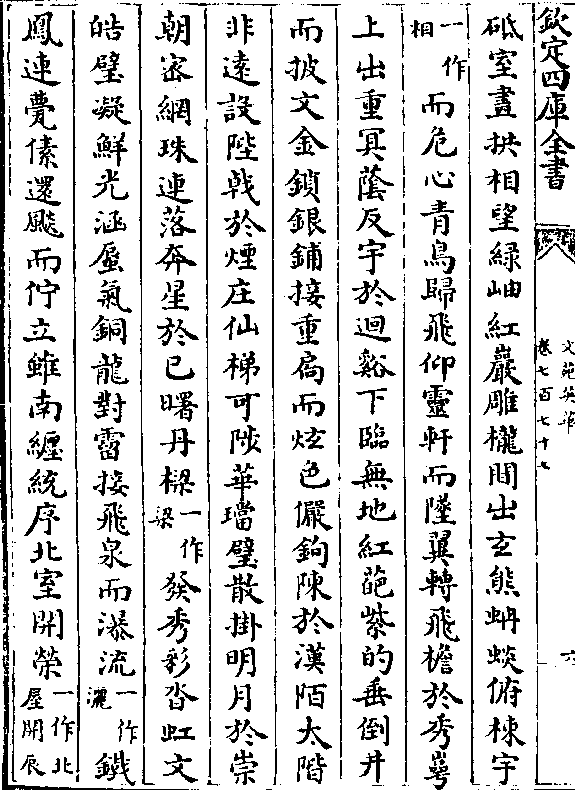 欽定四庫全書
文苑英華
卷七百七十七
六
砥室晝拱相望綠岫紅巖雕櫳間出玄熊蚺蜦俯棟宇
一作相而危心青鳥歸飛仰靈軒而墜翼轉飛檐於秀萼
上出重冥蔭反宇於迴谿下臨無地紅葩紫的垂倒井
而披文金鎖銀鋪接重扃而炫色儼鉤陳於漢陌太階
非遠設陛戟於煙庄仙梯可陟華璫璧散掛明月於崇
朝宻網珠連落奔星於已曙丹樑一作梁發秀彩沓虹文
皓璧凝鮮光涵蜃氣銅龍對霤接飛泉而瀑流一作灑鐵
鳳連甍傃還飈而佇立雖南纏統序北室開榮一作北屋開辰